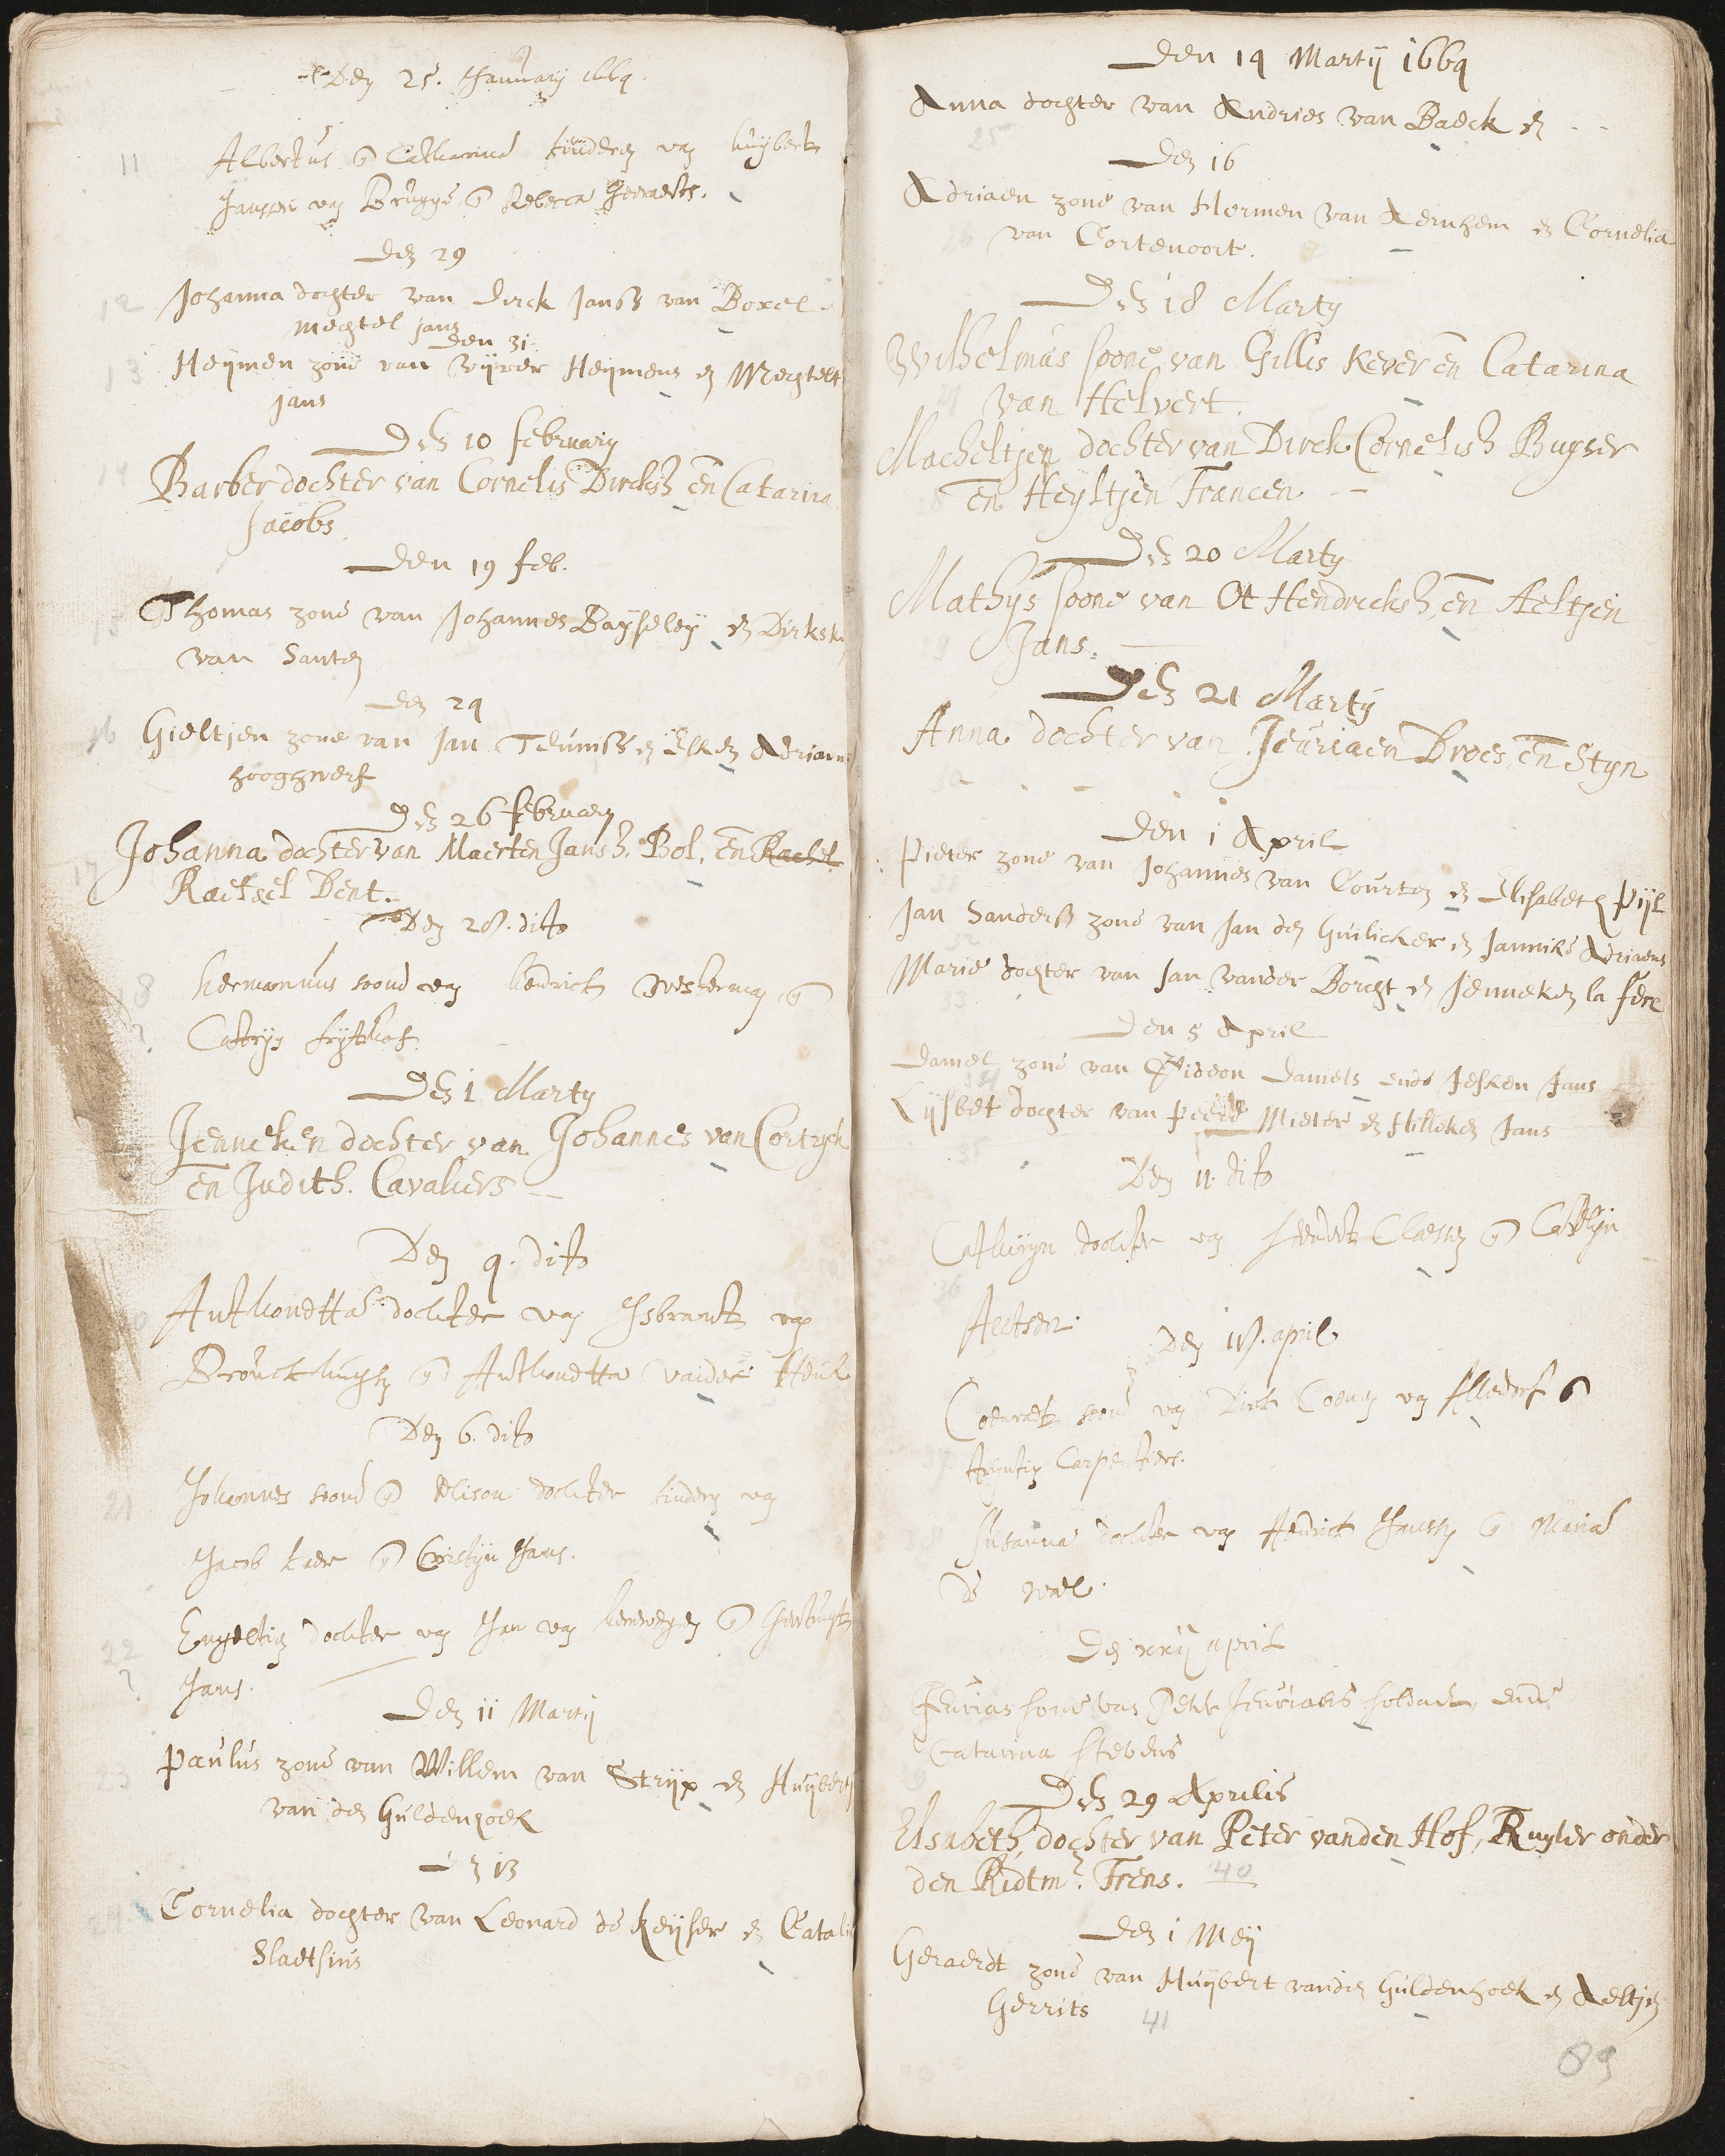 Den 25. January 1664.
11
Albertus en Catharina kinderen van huijbert
Janssen van Brugge en Rebecca Gerraerts.
den 29
12 Johanna dochter van Dirck Janss van Boxel
mechtel jans
den 31
13 Heijmen zone van Wijver Heijmens en Mechtelt
jans
Den 10 february
14 Barber dochter van Cornelis Dircksz en Catarina
Jacobs
Den 19 feb.
15 Thomas zone van Johannes Baijseleij en Dirksk
van Santen
den 24
16 Gieltjen zone van Jan Teuniss en Elken Adriaen
hooghwerf
Den 26 february
17 Johanna dochter van Maerten Jansz. Bol, en Rachel
Raetsel Bent.
Den 28. dito
8 Hermannus soone van hendrick Westerman en
Catrijn
Den 1 Marty
Jenneken dochter van Johannes van Cortryck
en Judith. Cavaliers
Den 4. dito
Anthonetta dochter van Isbrandt van
en Anthonetta vander
Den 6. dito
21 Johannes soone en Alison dochter kinderen van
Jacob en Cristijn Jans.
22 Engeltien dochter van Jan van en Geertruijt
Jans.
Den 11 Martij
23 Paulus zone van Willem van Strijp en Huijbert
van den Guldenhoek
Den 13
24 Cornelia dochter van Leonard de Keijser en Catali
Sladtsius
Den 14 Martij 1664
Anna dochter van Andries van Baeck en - -
25
Den 16
Adriaen zone van Hermen van Aernhem en Cornelia
26 van Cortenoort.
Den 18 Marty
Wilhelmus soone van Gillis Kever en Catarina
27 van Helvert.
Macheltjen dochter van Dirck Cornelisz Buyser
28 en Heyltjen Francen
Den 20 Marty
Mathys soone van Ot Hendricksz, en Aeltjen
29 Jans.
Den 21 Marty
Anna dochter van Jeuriaen Droes, en Styn
30 - - -
Den 1 April
Pieter zone van Johannes van Courten en Elisabeth Pijl
31
Jan Sanderss zone van Jan den Guilicker en Janniks Adriaens
32
Marie dochter van Jan vander Borcht en Jenneken la fere
33
Den 5 April
Daniel zone van Gideon Daniels ende Jesken Jans
34
Lijsbet dochter van Peere Mieter en Hilleken Jans
35
Den 11. dito
Cathrijn dochter van Hendrick Claessen en Catlijn
36
Aertsen.
Den 18. april
Coenraedt soone van Dirck Coenen van Alledorf en
37 Trijntien Carpentiers.
38 Susanna dochter van Hendrick Janssen en Maria
de Wael.
Den xxij april
Jeurian sone van Peter Jeuriaens soldaet, ende
Catarina Stevens
39
Den 29 Aprilis
Elsabeth, dochter van Peter vanden Hof, Ruyter onder
den Ridtmr. Frens. 40
Den 1 Meij
Geraerdt zone van Huijbert vanden Guldenhoek en Aeltjen
Gerrits 41
89